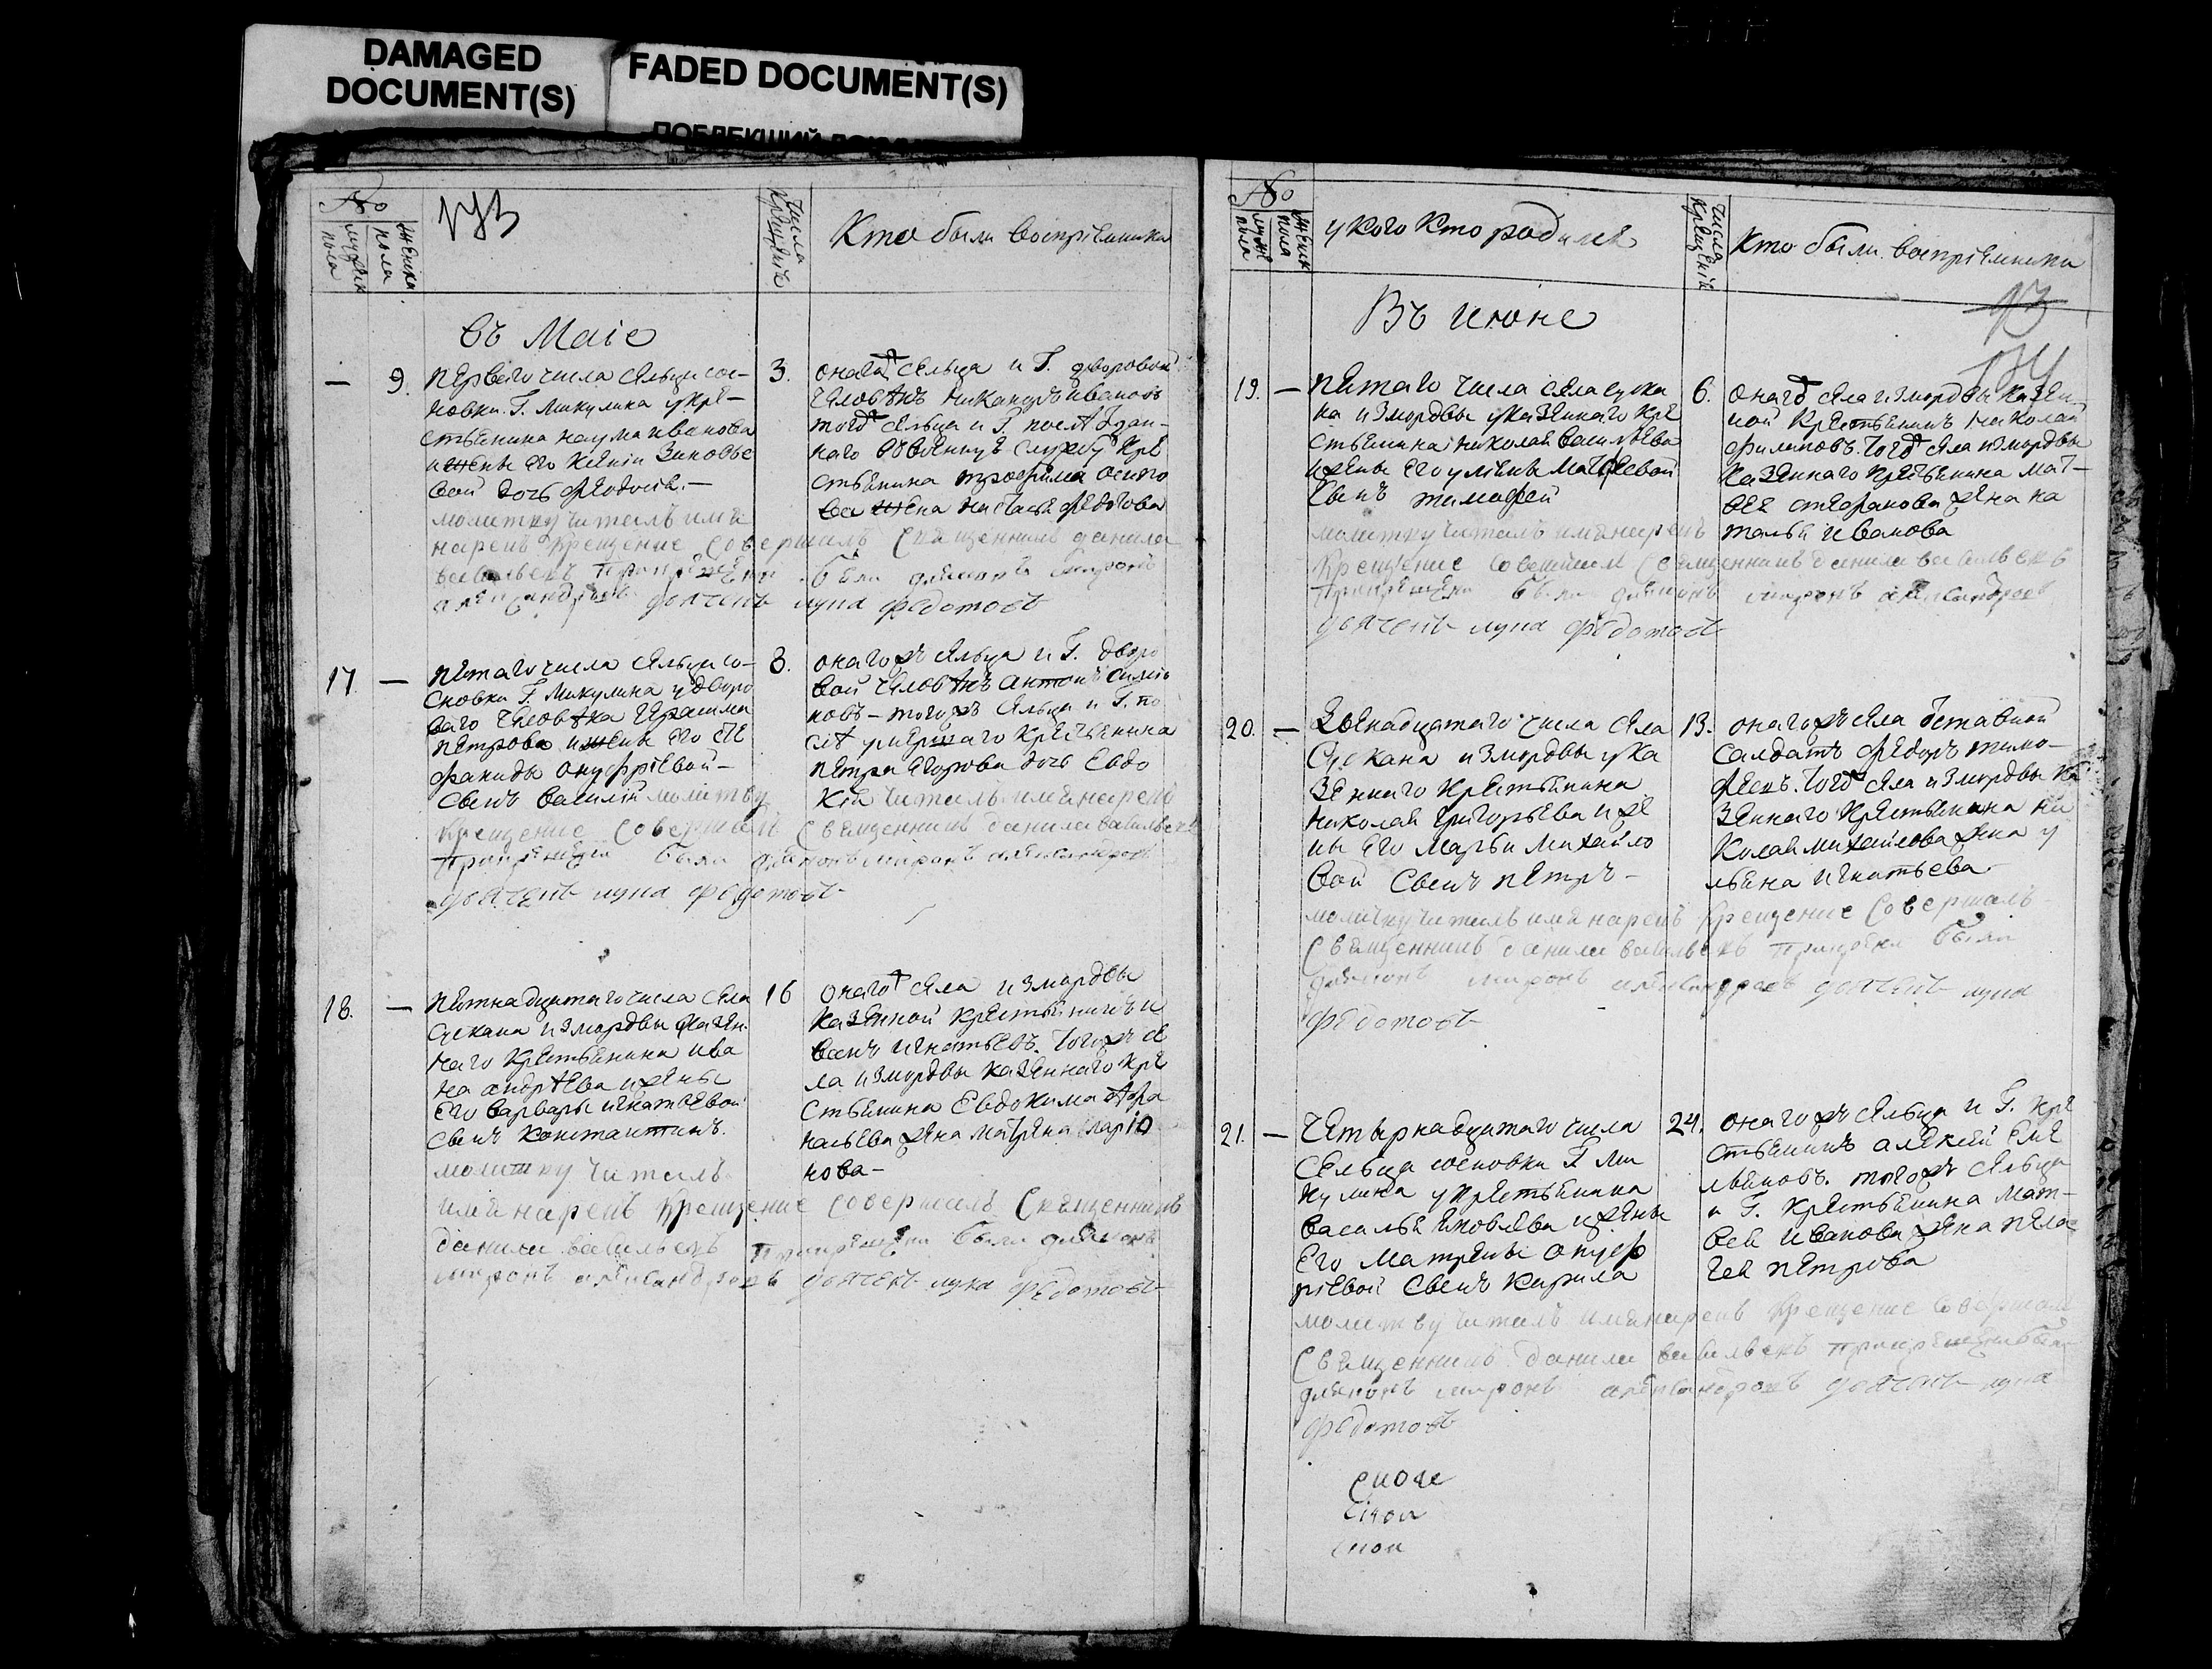 DAMAGED
DOCUMENT(S)
FADED DOCUMENT(S)
№
мужск
пола
женска
пола
числа
крещенія
Кто были восприемники
въ Маіе
9.
первого числа сельца сос-
новки Г. Микулина укре-
стьянина наума иванова
и жены его Ксеніи Зиновье
вой дочь Феодосия.-
молитву читалъ имя
нарекъ крещение совершалъ священникъ данила
васильевъ при крещении были диаконъ миронъ
александровъ дьячекъ лука федотовъ
3.
онагожъ сельца и Г. дворовой
человекъ никаноръ ивановъ
тогожъ сельца и Г. после здан-
наго в военную службу кре
стьянина трофима осипо
ва жена настасья федотова
17.
пятаго числа сельца со-
сновки Г. Микулина у дворо
ваго человека герасима
петрова и жены его сте
фаниды онуфріевой-
сынъ василій молитву
читалъ имя нарекъ
крещение совершалъ священникъ данила васильевъ
при крещении были диаконъ миронъ александровъ
дьячекъ лука федотовъ
8.
онагожъ сельца и Г. дворо
вой человекъ антонъ симіо
новъ - тогожъ сельца и Г. по
сле умершаго крестьянина
петра егорова дочь Евдо
кія
18.
пятнадцатаго числа села
сускана измордвы у казен
наго крестьянина ива
на андреева и жены
его варвары игнатьевой
сынъ константинъ.
молитву читалъ
имя нарекъ крещение совершалъ священникъ
данила васильевъ при крещении были диаконъ
миронъ александровъ дьячекъ лука федотовъ
16
онагожъ села измордвы
казенной крестьянинъ и
ванъ игнатьевъ. тогожъ се
ла измордвы казеннаго кре
стьянина Евдокима афа
насьева жена матрена ларіо
нова-
№
мужс
пола
женск
пола
у кого кто родился
числа
крещенія
Кто были восприемники
Въ июне
19.
пятаго числа села суска
на измордвы у казеннаго кре
стьянина николая васильева
и жены его улияны матфеевой
сынъ тимофей
молитву читалъ имя нарекъ
крещение совершалъ священникъ данила васильевъ
при крещении были диаконъ миронъ александровъ
дьячекъ лука федотовъ
6.
онагожъ села измордвы казен-
ной крестьянинъ николай
филиповъ. тогожъ села измордвы
казеннаго крестьянина мат-
вея стефанова жена на
талья иванова
20.
двенадцатаго числа села
сускана измордвы у ка
зеннаго крестьянина
николая григорьева и же
ны его марьи михайло
вой сынъ петръ-
молитву читалъ имя нарекъ крещение совершалъ
священникъ данила васильевъ при крещении были
диаконъ миронъ александровъ дьячекъ лука
федотовъ
13.
онагожъ села отставной
салдатъ федоръ тимо-
феевъ. тогожъ села измордвы ка
зеннаго крестьянина ни
колая михайлова жена у
льяна игнатьева
21.
четырнадцатаго числа
сельца сосновки Г. ми
кулина у крестьянина
василья яковлева и жены
его матрены онуф
ріевой сынъ кирила
молитву читалъ имя нарекъ крещение совершалъ
священникъ данила васильевъ при крещении были
диаконъ миронъ александровъ дьячекъ лука
федотовъ
24.
онагожъ сельца и Г. кре
стьянинъ алексей еме
льяновъ. тогожъ сельца
и Г. крестьянина мат-
вея иванова жена пела
гея петрова